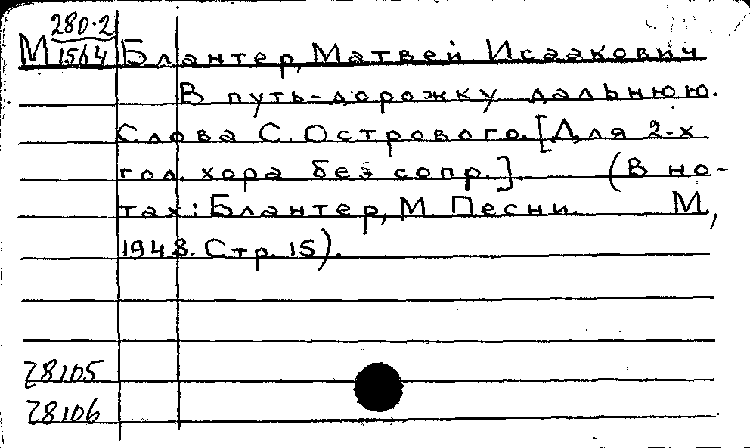 280-2
М 1564 Блантер, Матвей Исаакович
В путь-дорожку дальнюю.
Слова С. Острового. [Для 2-х
гол. хора без сопр.]. (В но-
тах: Блантер, М. Песни. М,
1948. Стр. 15).
28105
28106